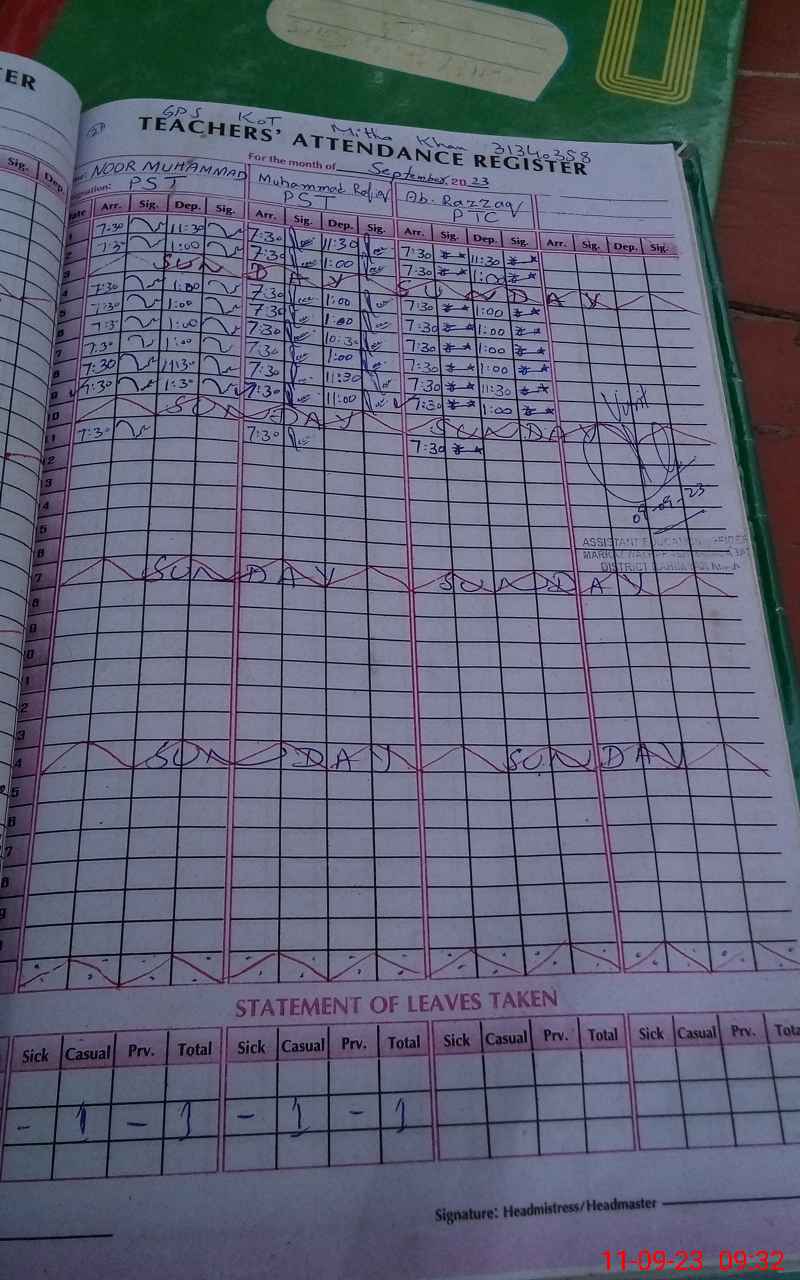 TER
Sig. Dep
GPS KOT Mitha Khan 31340358
TEACHERS' ATTENDANCE REGISTER
For the month of September 20 23
NOOR MUHAMMAD Muhammad Rafiq Ab. Razzaq
PST PST PTC
Arr. Sig. Dep. Sig. Arr. Sig. Dep. Sig. Arr. Sig. Dep. Sig. Arr. Sig. Dep. Sig.
1 7:30 11:30 7:30 11:30 7:30 11:30
2 7:3 1:00 7:30 1:00 7:30
3 SUNDAY SUNDAY
4 7:30 1:00 7:30 1:00 7:30 1:00
5 7:30 1:00 7:30 1:00 7:30 1:00
6 7:3 1:00 7:30 10:30 7:30 1:00
7 7:30 1:00 7:30 1:00 7:30 1:00
8 7:30 11:30 7:30 11:30 7:30 11:30
9 7:30 1:30 7:30 11:00 7:30 1:00
10 SUNDAY SUNDAY
11 7:30 7:30 7:30
Visit
09-09-23
2
3
4
5
6
ASSISTANT EDUCATION
7 SUNDAY SUNDAY
DISTRICT
8
9
0
1
2
3
4 SUNDAY SUNDAY
5
6
7
8
9
STATEMENT OF LEAVES TAKEN
Sick Casual Prv. Total Sick Casual Prv. Total Sick Casual Prv. Total Sick Casual Prv. Total
- 1 - 1 - 1 - 1
Signature: Headmistress/Headmaster
11-09-23 09:32